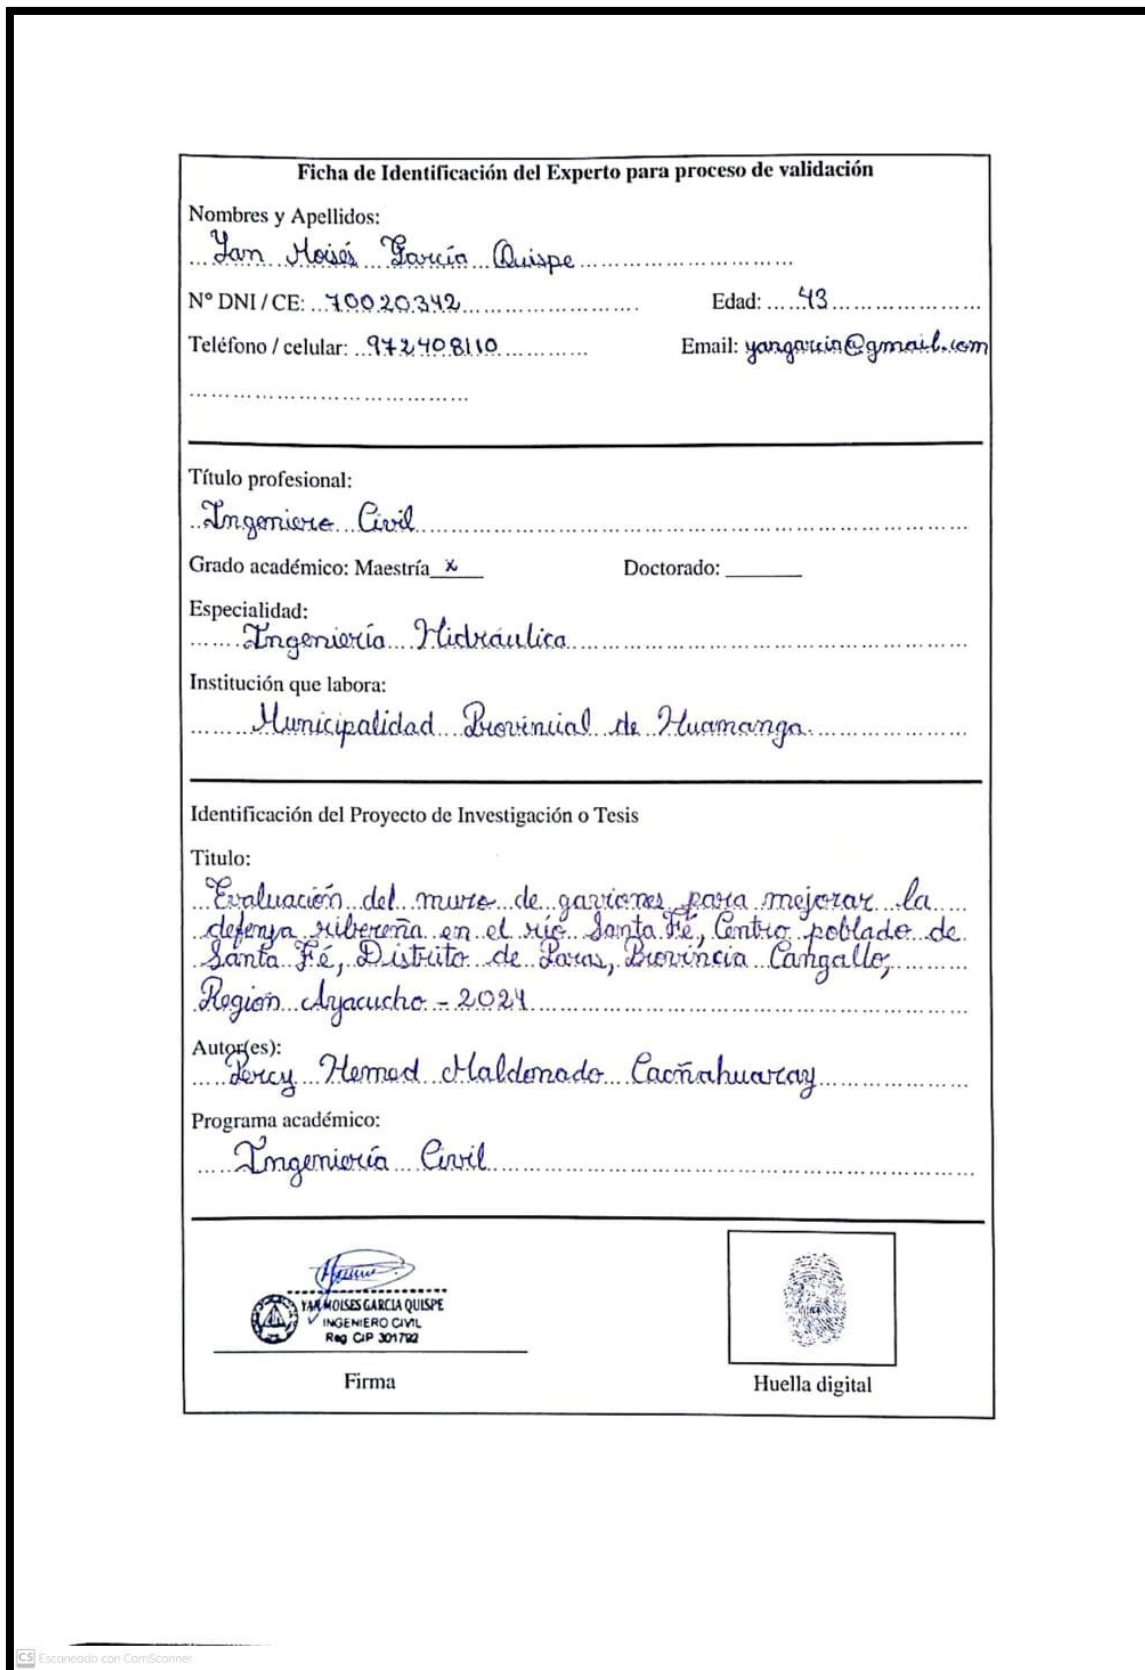 Ficha de Identificación del Experto para proceso de validación
Nombres y Apellidos:
Yan Moisés García Quispe
N° DNI / CE: 70020342 Edad: 43
Teléfono / celular: 972408110 Email: yangarcia@gmail.com
Título profesional:
Ingeniero Civil
Grado académico: Maestría x Doctorado:
Especialidad:
Ingeniería Hidráulica
Institución que labora:
Municipalidad Provincial de Huamanga.
Identificación del Proyecto de Investigación o Tesis
Titulo:
Evaluación del muro de gaviones para mejorar la
defensa ribereña en el río Santa Fé, Centro poblado de
Santa Fé, Distrito de Paras, Provincia Cangallo,
Región Ayacucho - 2024
Autor(es):
Percy Hemed Maldonado Cacñahuaray
Programa académico:
Ingeniería Civil
YAN MOISES GARCIA QUISPE
INGENIERO CIVIL
Reg CIP 301792
Firma
Huella digital
CS Escaneado con CamScanner